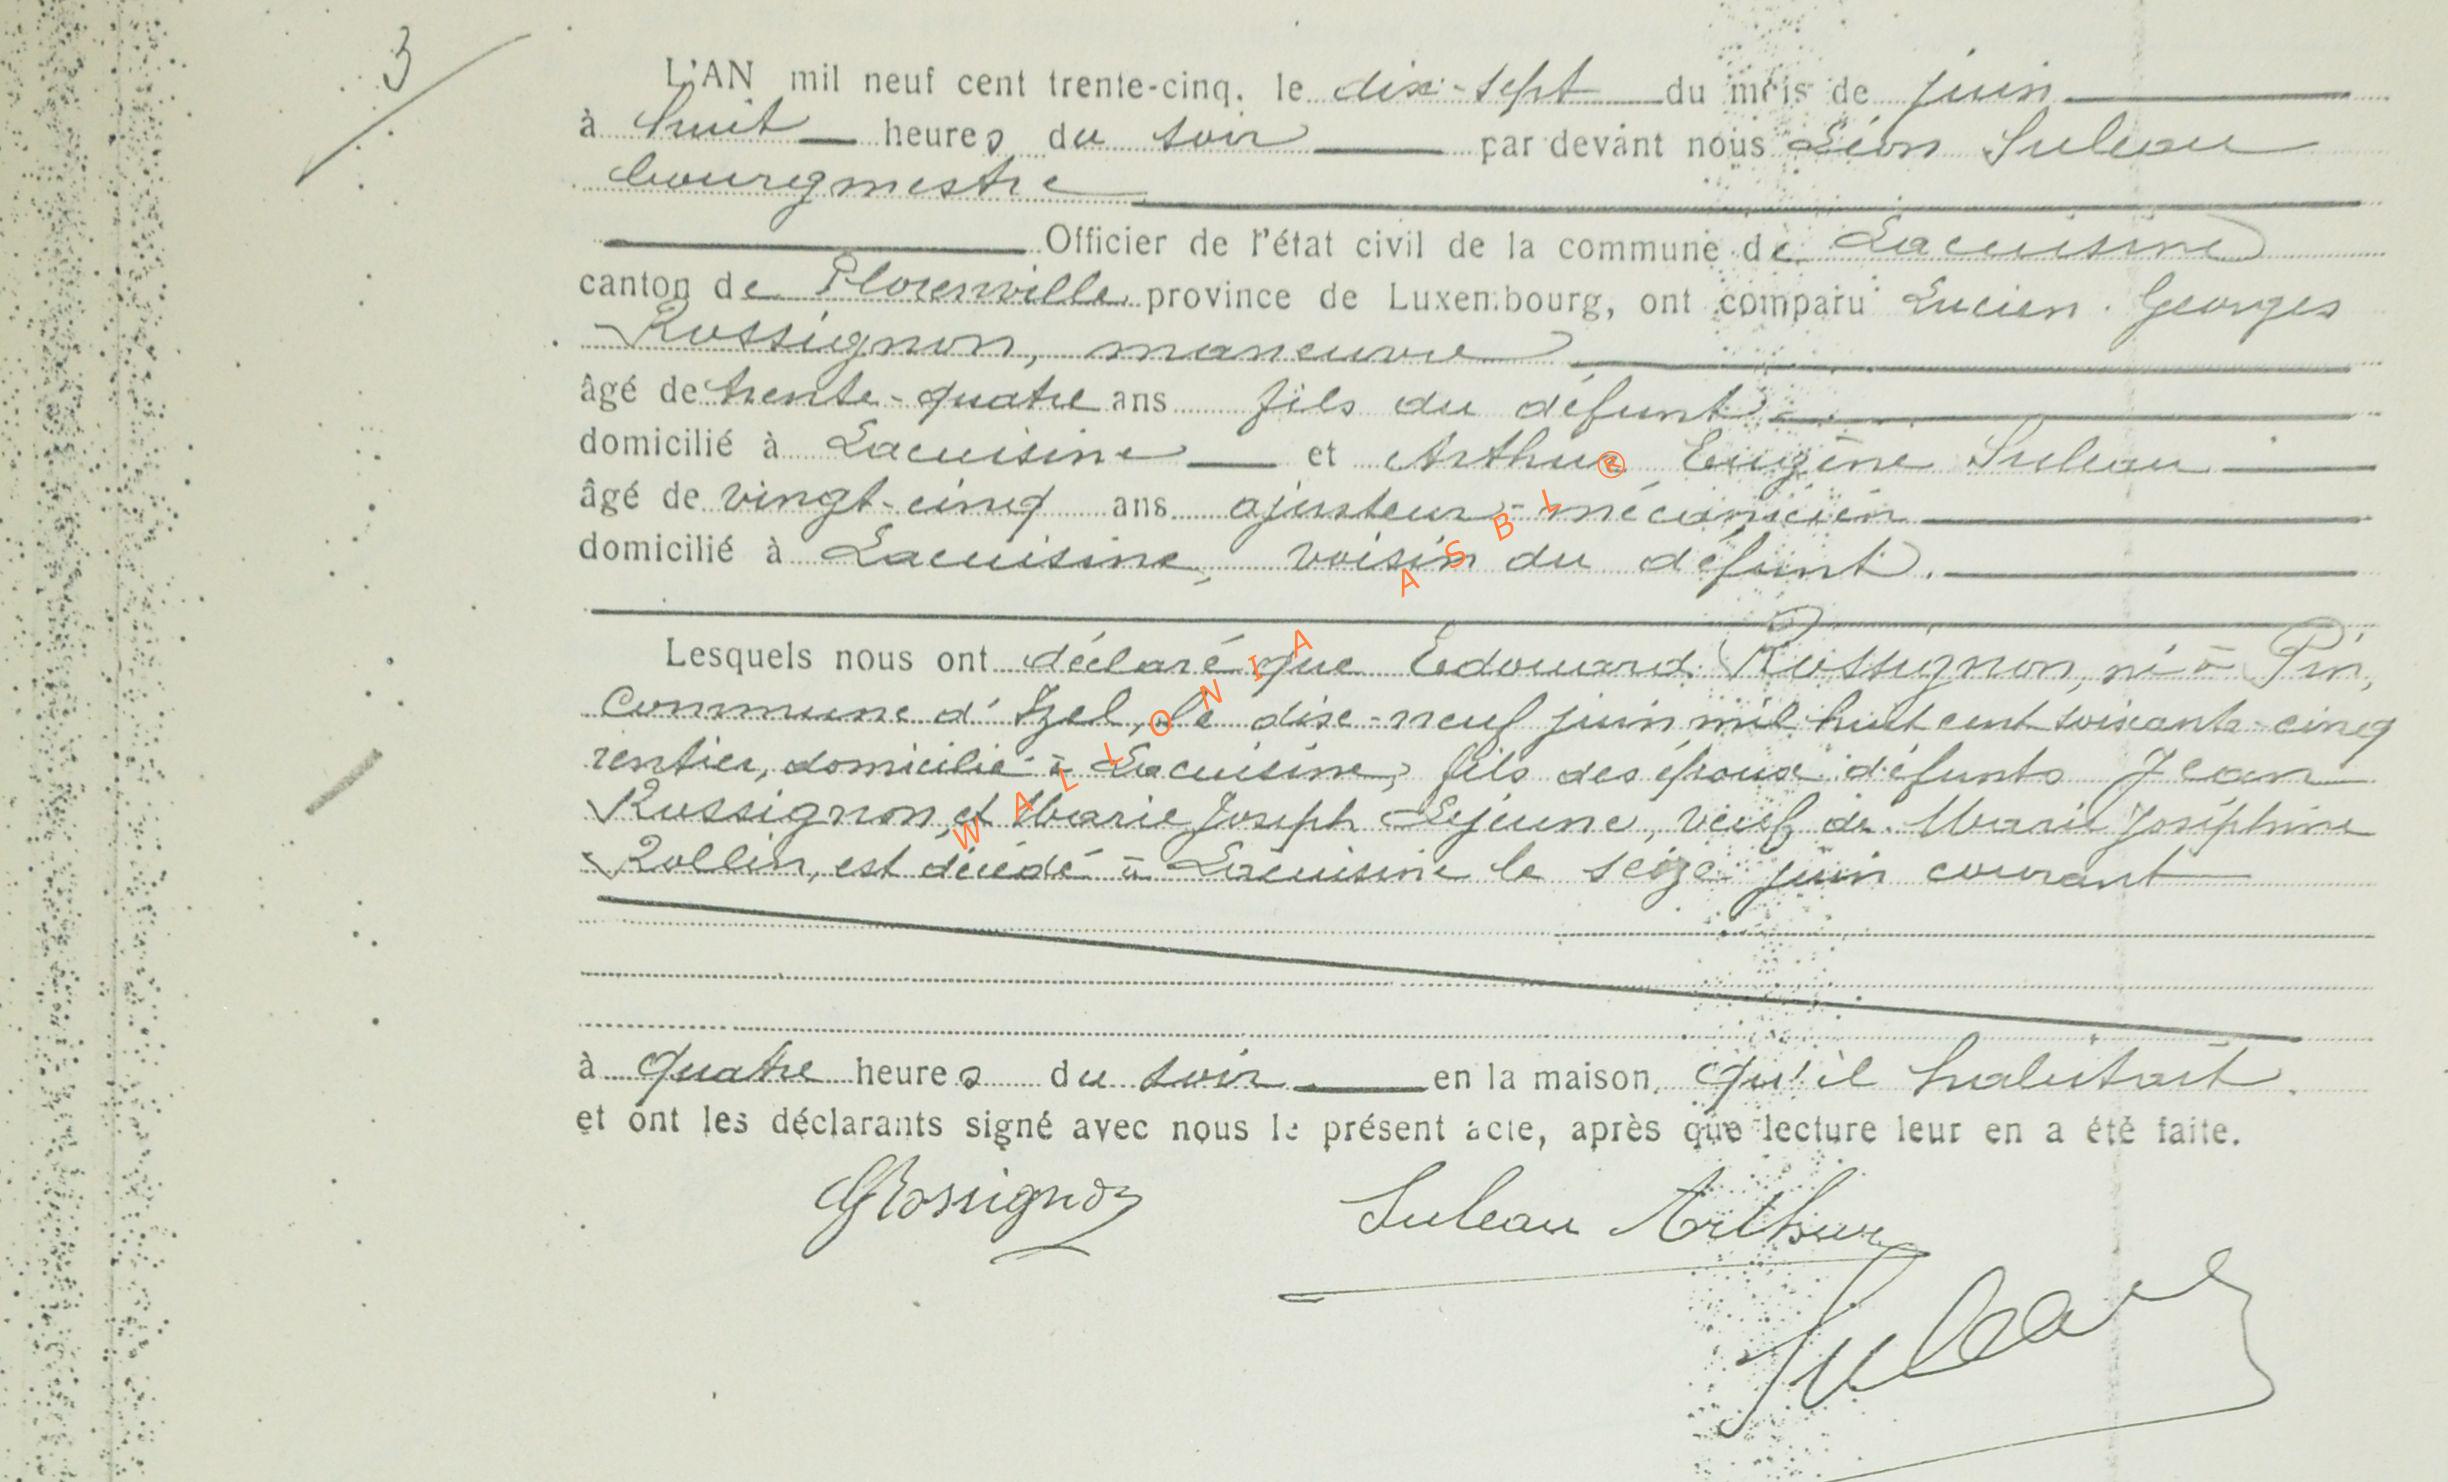 3
L'AN mil neuf cent trente-cinq, le dix-sept du mois de juin
à huit heures du soir par devant nous Léon Suleau
bourgmestre
Officier de l'état civil de la commune de Lacuisine
canton de Florenville province de Luxembourg, ont comparu Lucien Georges
Rossignon, manœuvre
âgé de trente-quatre ans fils du défunt
domicilié à Lacuisine et Arthur Eugène Suleau
âgé de vingt-cinq ans ajusteur-mécanicien
domicilié à Lacuisine, voisin du défunt.
Lesquels nous ont déclaré que Edouard Rossignon, né à Pin,
commune d'Izel, le dix-neuf juin mil huit cent soixante-cinq
rentier, domicilié à Lacuisine, fils des époux défunts Jean
Rossignon et Marie Joseph Lejeune, veuf de Marie Joséphine
Rollin, est décédé à Lacuisine le seize juin courant
à quatre heures du soir en la maison qu'il habitait.
et ont les déclarants signé avec nous le présent acte, après que lecture leur en a été faite.
GRossignon Suleau Arthur
Suleau
WALLONIA ASBL ®